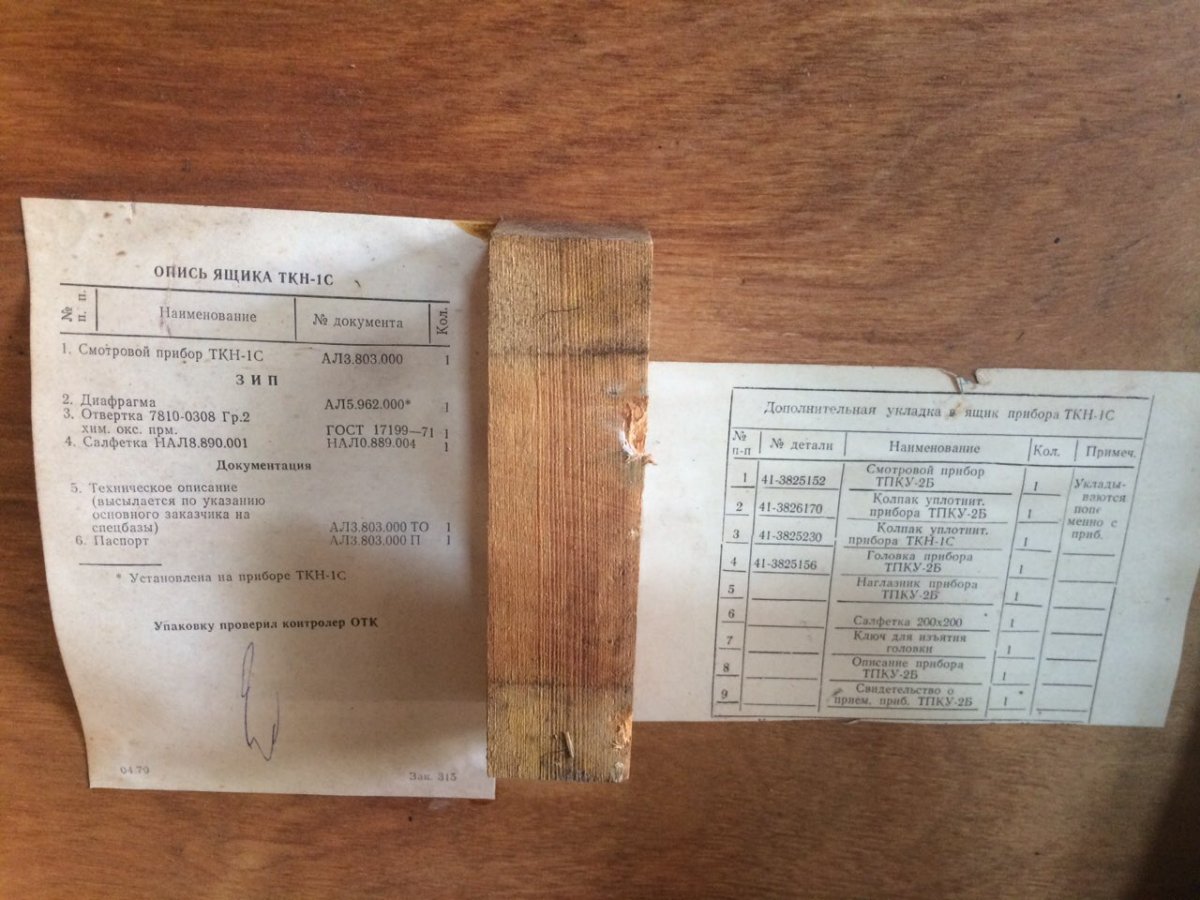 ОПИСЬ ЯЩИКА ТКН-1С
№ п. п. Наименование № документа Кол.
1. Смотровой прибор ТКН-1С АЛ3.803.000 1
ЗИП
2. Диафрагма АЛ5.962.000* 1
3. Отвертка 7810-0308 Гр.2
хим. окс. прм. ГОСТ 17199—71 1
4. Салфетка НАЛ8.890.001 НАЛ0.889.004 1
Документация
5. Техническое описание
(высылается по указанию
основного заказчика на
спецбазы) АЛ3.803.000 ТО 1
6. Паспорт АЛ3.803.000 П 1
* Установлена на приборе ТКН-1С
Упаковку проверил контролер ОТК
04.79 Зак. 315
Дополнительная укладка в ящик прибора ТКН-1С
№ п-п № детали Наименование Кол. Примеч.
1 41-3825152 Смотровой прибор ТПКУ-2Б 1 Уклады-
ваются
попе
менно с
приб.
2 41-3826170 Колпак уплотнит. прибора ТПКУ-2Б 1
3 41-3825230 Колпак уплотнит. прибора ТКН-1С 1
4 41-3825156 Головка прибора ТПКУ-2Б 1
5 Наглазник прибора ТПКУ-2Б 1
6 Салфетка 200х200 1
7 Ключ для изъятия головки 1
8 Описание прибора ТПКУ-2Б 1
9 Свидетельство о прием. приб. ТПКУ-2Б 1